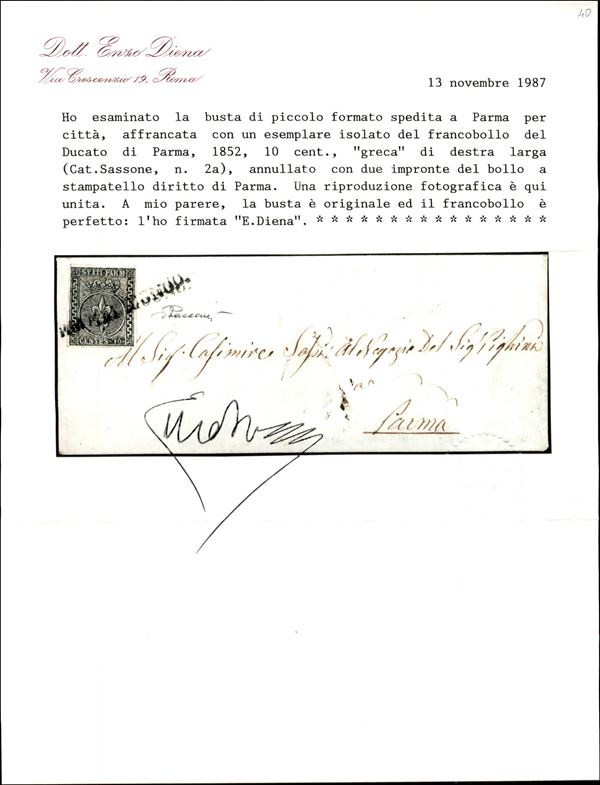 40
Dott. Enzo Diena
Via Crescenzio 19, Roma
13 novembre 1987
Ho esaminato la busta di piccolo formato spedita a Parma per
città, affrancata con un esemplare isolato del francobollo del
Ducato di Parma, 1852, 10 cent., "greca" di destra larga
(Cat.Sassone, n. 2a), annullato con due impronte del bollo a
stampatello diritto di Parma. Una riproduzione fotografica è qui
unita. A mio parere, la busta è originale ed il francobollo è
perfetto: l'ho firmata "E.Diena". * * * * * * * * * * * * * * * *
STATI PARM
CENTES. 10
Al Sig. Casimire Al Negozio Del Sig
Parma